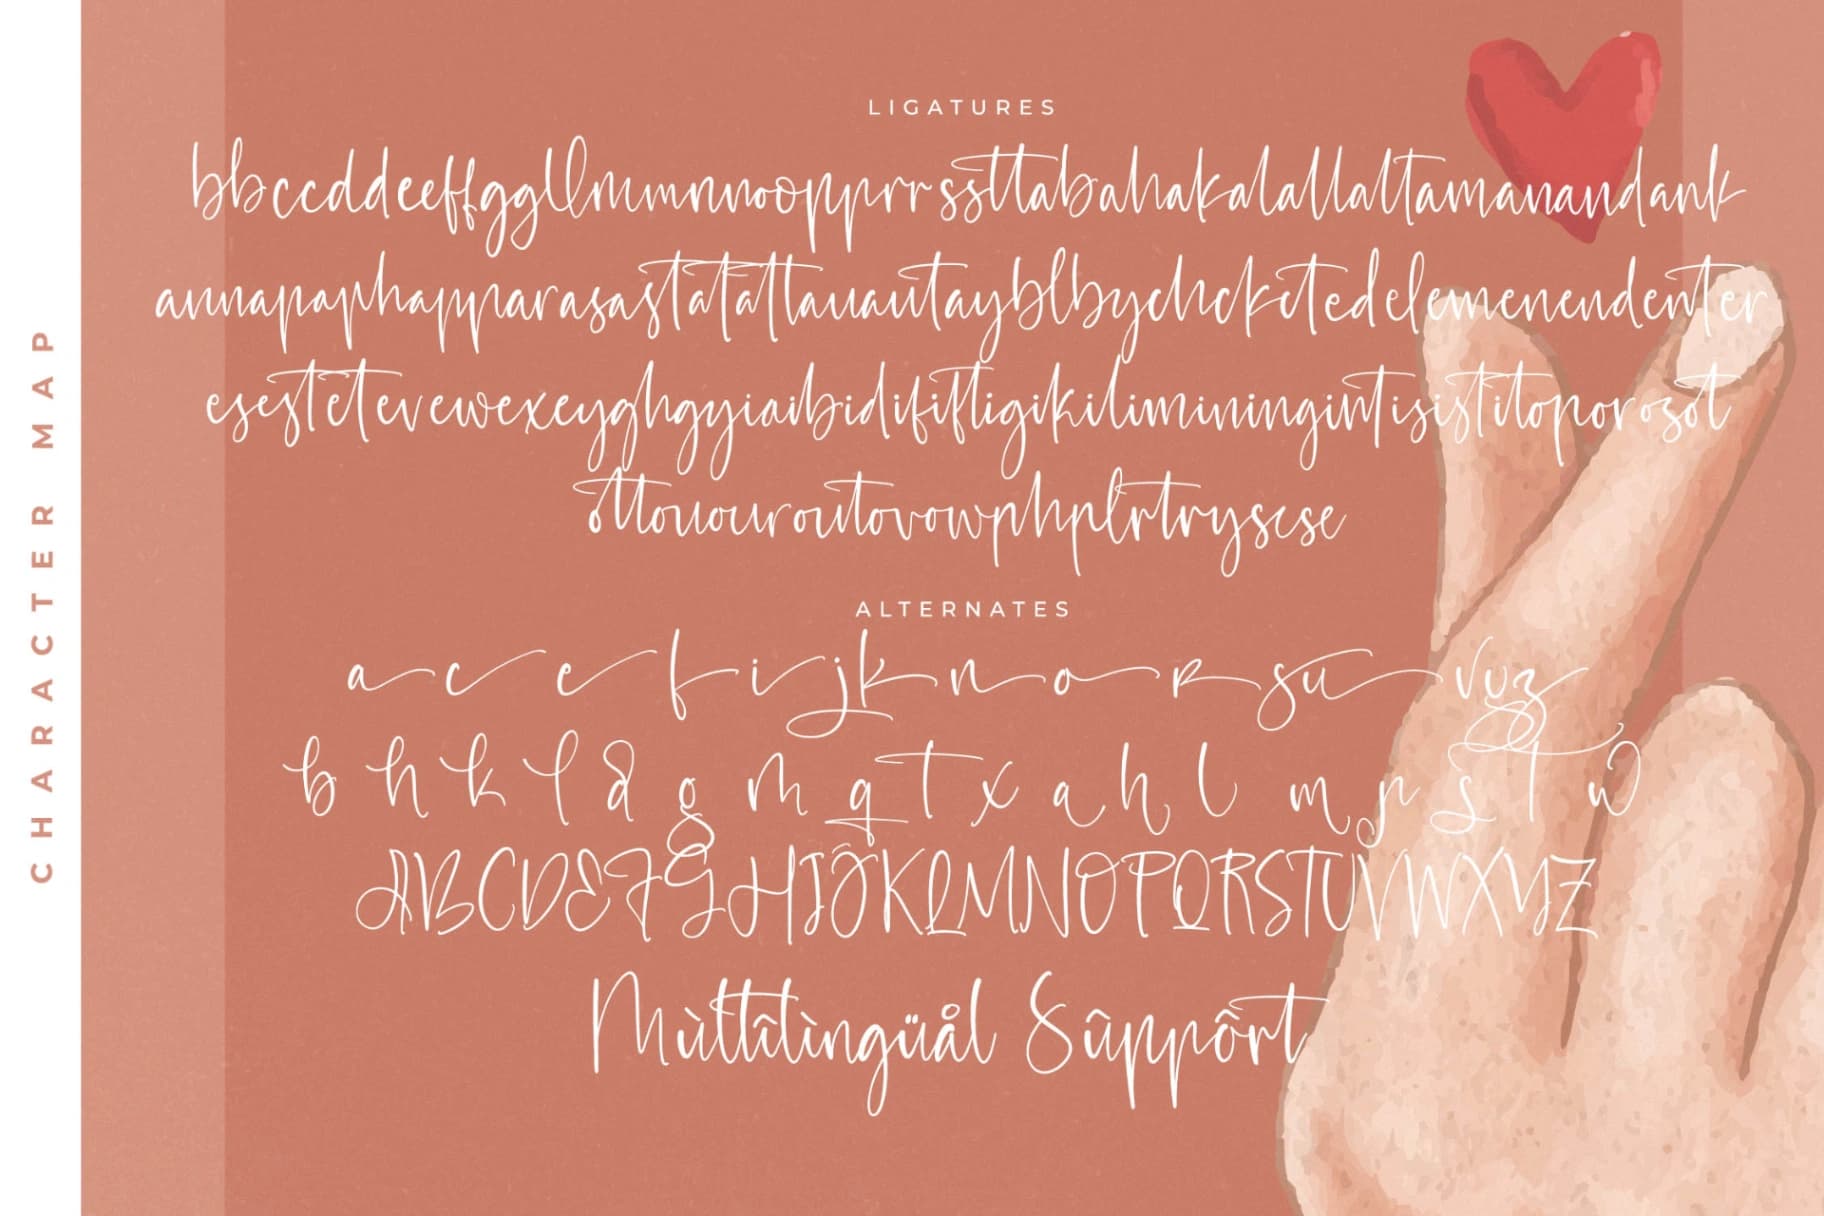 CHARACTER MAP
LIGATURES
bbccddeeffggllmmnnooopprrssttabahakalallaltamanandank
annapaphapparasasstatattauautayblbychckctedelemenendenter
esestetevewexeyghgyiaibidififtigikiliminingintisistitoporosot
ottououroutovowphplrtryscse
ALTERNATES
a c e f i j k n o r s u v y z
b h k l d g m q t x a h l m p s t w
ABCDEFGHIJKLMNOPQRSTUVWXYZ
Mùltîlìngüål Sûppôrt